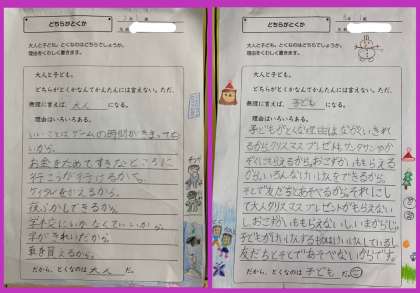 どちらがとくか
大人と子ども。とくなのはどちらでしょうか。
理由をくわしく書きます。
大人と子ども。
どちらがとくかなんてかんたんには言えない。ただ、
無理に言えば、大人 になる。
理由はいろいろある。
いいことはゲームの時間がきまってな
いから。
お金をためてすきなところに
行こうが行けるから。
ゲームをかえるから。
夜ふかしできるから。
学校にいかなくていいから。
字がきれいだから。
車を買えるから。
だから、とくなのは 大人 だ。
どちらがとくか
大人と子ども。とくなのはどちらでしょうか。
理由をくわしく書きます。
大人と子ども。
どちらがとくかなんてかんたんには言えない。ただ、
無理に言えば、子ども になる。
理由はいろいろある。
子どもがとくな理由はながいきれ
るからクリスマスプレゼントサンタサンやか
ぞくにもらえるからおこずかいももらえる
からいろんなけいけんをできるから。
そして友だちとあそべるからそれにし
て大人クリスマスプレゼントがもらえない
しおこずかいももらえない
子どもが
友だちと あそべないからです。
だから、とくなのは 子ども だ。